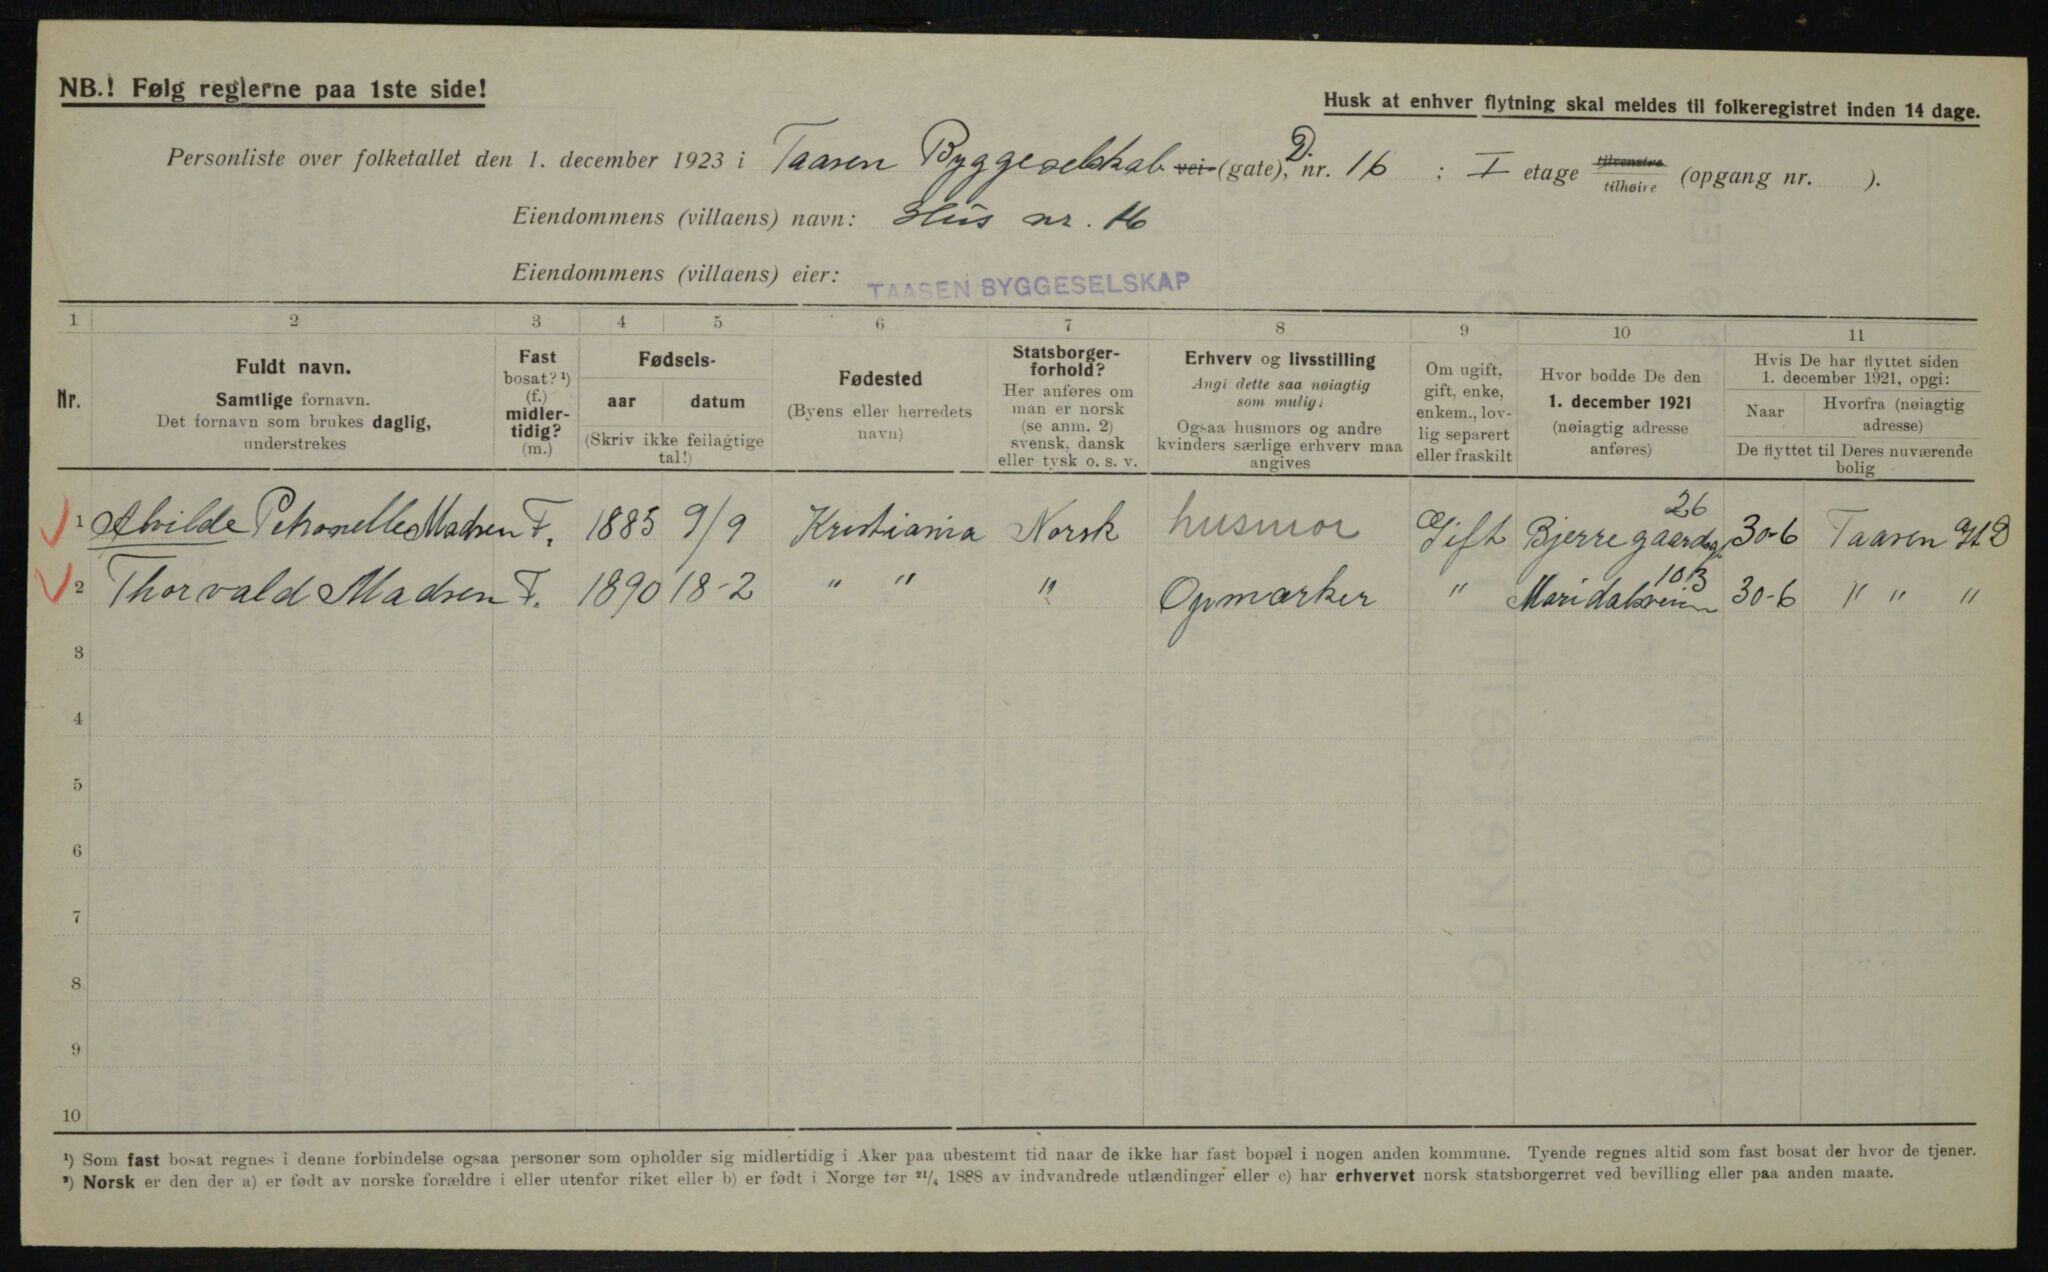 NB.! Følg reglerne paa 1ste side!
Husk at enhver flytning skal meldes til folkeregistret inden 14 dage.
Personliste over folketallet den 1. december 1923 i Taasen Byggeselskab vei (gate), D. nr. 16 ; I etage tilvenstre tilhøire (opgang nr. ).
Eiendommens (villaens) navn: Hus nr. 16
Eiendommens (villaens) eier: TAASEN BYGGESELSKAP
1 2 3 4 5 6 7 8 9 10 11
Nr.
Fuldt navn.
Samtlige fornavn.
Det fornavn som brukes daglig,
understrekes
Fast
bosat? ¹)
(f.)
midler-
tidig?
(m.)
Fødsels-
aar datum
(Skriv ikke feilagtige
tal!)
Fødested
(Byens eller herredets
navn)
Statsborger-
forhold?
Her anføres om
man er norsk
(se anm. 2)
svensk, dansk
eller tysk o. s. v.
Erhverv og livsstilling
Angi dette saa nøiagtig
som mulig:
Ogsaa husmors og andre
kvinders særlige erhverv maa
angives
Om ugift,
gift, enke,
enkem., lov-
lig separert
eller fraskilt
Hvor bodde De den
1. december 1921
(nøiagtig adresse
anføres)
Hvis De har flyttet siden
1. december 1921, opgi:
Naar
Hvorfra (nøiagtig
adresse)
De flyttet til Deres nuværende
bolig
1 Alvilde Petronelle Madsen F. 1885 9/9 Kristiania Norsk husmor Gift Bjerregaardsgt 26 30-6 Taasen Gt D
2 Thorvald Madsen F. 1890 18-2 " " " Opmærker " Maridalsveien 103 30-6 " " "
3
4
5
6
7
8
9
10
¹) Som fast bosat regnes i denne forbindelse ogsaa personer som opholder sig midlertidig i Aker paa ubestemt tid naar de ikke har fast bopæl i nogen anden kommune. Tyende regnes altid som fast bosat der hvor de tjener.
²) Norsk er den der a) er født av norske forældre i eller utenfor riket eller b) er født i Norge før 21/4 1888 av indvandrede utlændinger eller c) har erhvervet norsk statsborgerret ved bevilling eller paa anden maate.